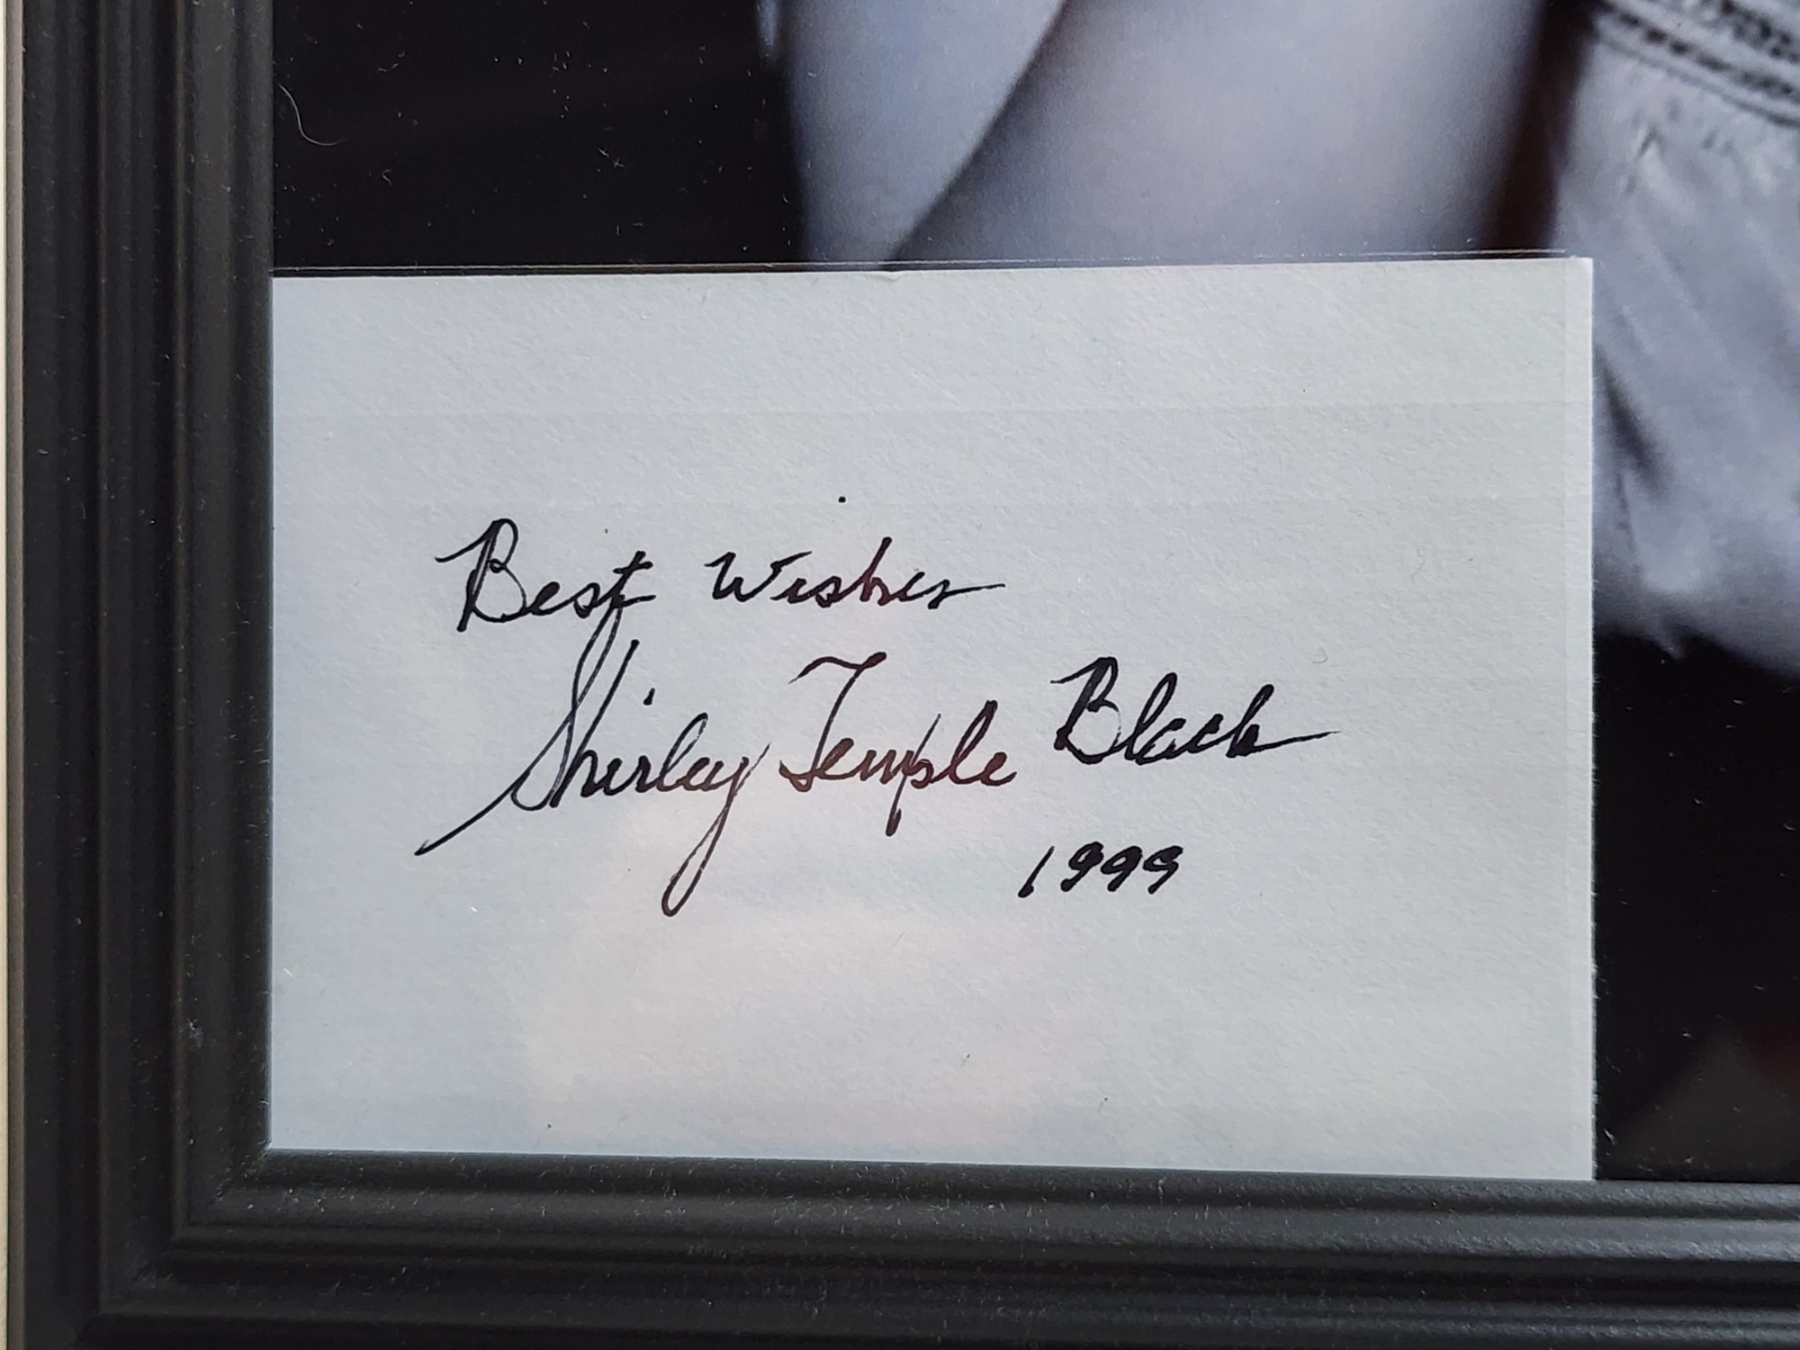 Best Wishes
Shirley Temple Black
1999